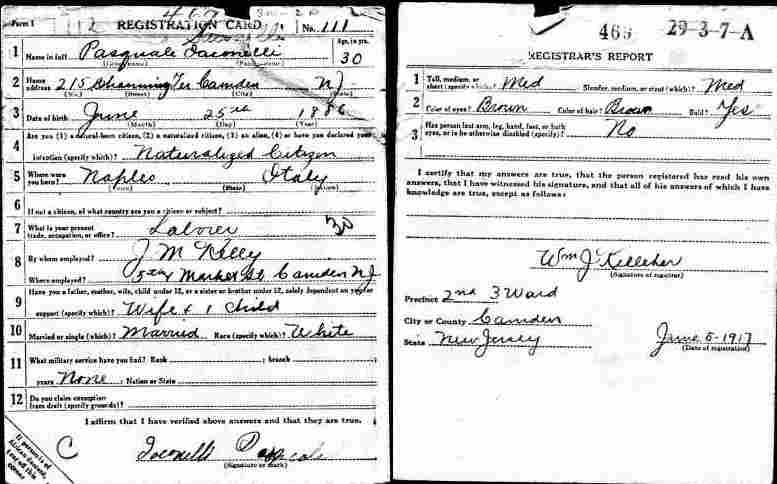 Form 1 REGISTRATION CARD No. 111
1 Name in full Pasquale Iaconelli Age, in yrs. 30
(Given name) (Family name)
2 Home address 215 Channing Ter Camden NJ
(No.) (Street) (City) (State)
3 Date of birth June 25 1886
(Month) (Day) (Year)
4 Are you (1) a natural-born citizen, (2) a naturalized citizen, (3) an alien, (4) or have you declared your
intention (specify which)? Naturalized Citizen
5 Where were you born? Naples Italy
(Town) (State) (Nation)
6 If not a citizen, of what country are you a citizen or subject?
7 What is your present trade, occupation, or office? Laborer 30
8 By whom employed? J M Kelly
Where employed? Market St Camden NJ
9 Have you a father, mother, wife, child under 12, or a sister or brother under 12, solely dependent on you for
support (specify which)? Wife + 1 Child
10 Married or single (which)? Married Race (specify which)? White
11 What military service have you had? Rank ; branch ;
years None ; Nation or State
12 Do you claim exemption from draft (specify grounds)?
I affirm that I have verified above answers and that they are true.
C
(Signature or mark)
If person is of African descent, tear off this corner
465 29-3-7-A
REGISTRAR'S REPORT
1 Tall, medium, or short (specify which)? Med Slender, medium, or stout (which)? Med
2 Color of eyes? Brown Color of hair? Brown Bald? Yes
3 Has person lost arm, leg, hand, foot, or both eyes, or is he otherwise disabled (specify)? No
I certify that my answers are true, that the person registered has read his own
answers, that I have witnessed his signature, and that all of his answers of which I have
knowledge are true, except as follows:
Wm J Kelleher
(Signature of registrar)
Precinct 2nd 3 Ward
City or County Camden
State New Jersey June 5-1917
(Date of registration)